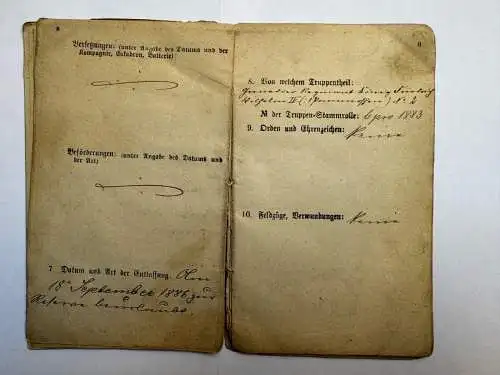 8
Versetzungen: (unter Angabe des Datums und der
Kompagnie, Eskadron, Batterie)
Beförderungen: (unter Angabe des Datums und
der Art)
7 Datum und Art der Entlassung. Am
18t September 1886 zur
Reserve beurlaubt
8. Von welchem Truppentheil:
Grenadier Regiment König Friedrich
Wilhelm IV (1 Pommersches) No 2
№ der Truppen-Stammrolle: 6 pro 1883
9. Orden und Ehrenzeichen: Keine
10. Feldzüge, Verwundungen: Keine